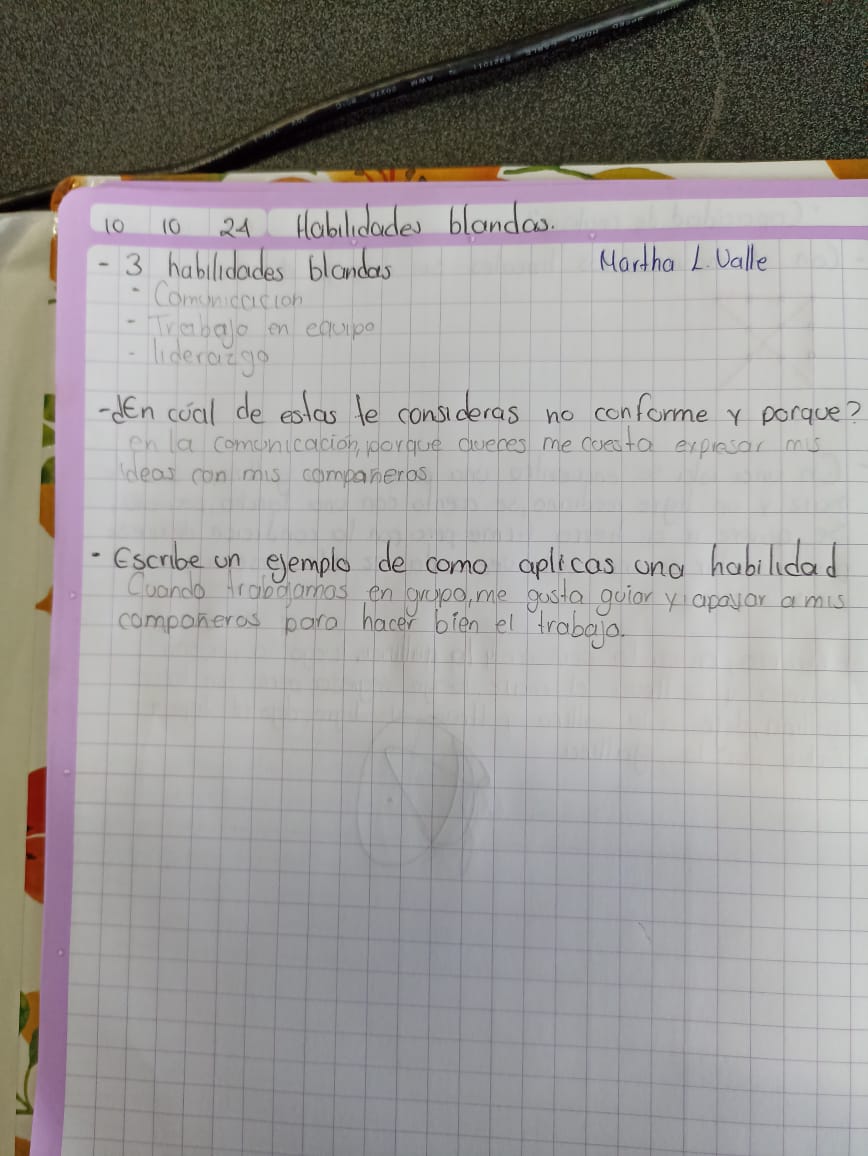 10 10 24 Habilidades blandas.
- 3 habilidades blandas
Martha L. Valle
- Comunicacion
- Trabajo en equipo
- liderazgo
- ¿En cúal de estas te consideras no conforme y porque?
en la comunicación, porque aveces me cuesta expresar mis
ideas con mis compañeros
- Escribe un ejemplo de como aplicas una habilidad
Cuando trabajamos en grupo, me gusta guiar y apoyar a mis
compañeros para hacer bien el trabajo.